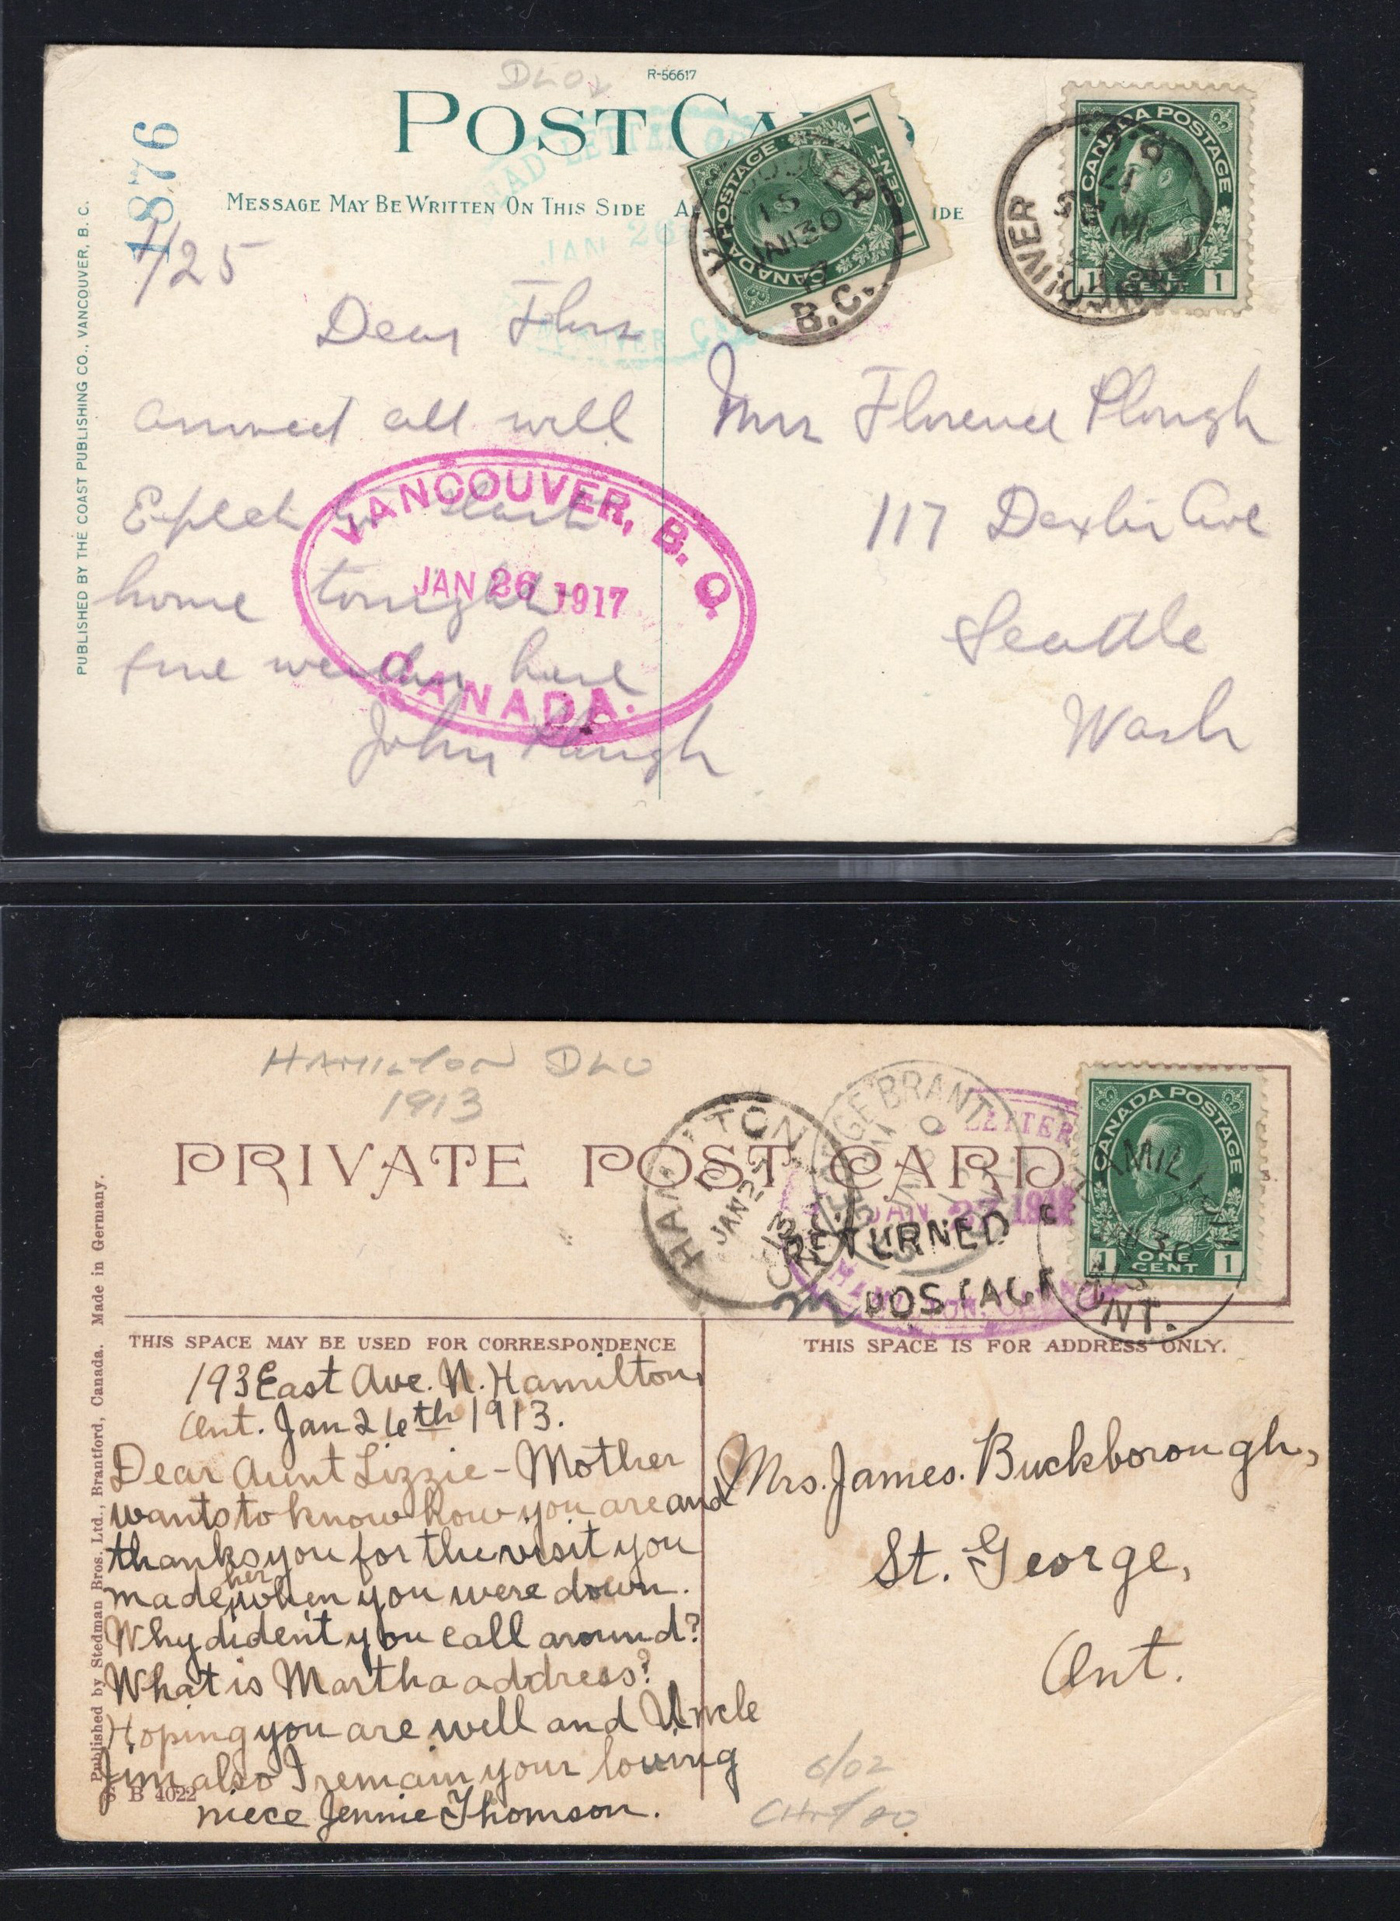 DLO
R-56617
POST CA
MESSAGE MAY BE WRITTEN ON THIS SIDE
IDE
1876
PUBLISHED BY THE COAST PUBLISHING CO., VANCOUVER, B. C.
DEAD LETTER OF
JAN 26
VANCOUVER CA
VANCOUVER
15
JAN 30
17
B.C.
CANADA POSTAGE
1 CENT 1
VANCOUVER
CANADA POSTAGE
1 ONE CENT 1
1/25
Dear Flors
arrived all well
Expect to start
home tonight
fine weather here
John Plough
VANCOUVER, B. C.
JAN 26 1917
CANADA.
Mrs Florence Plough
117 Dexter Ave
Seattle
Wash
HAMILTON DLO
1913
PRIVATE POST CARD
HAMILTON
JAN 27
13
GE BRANT
LETTER
JAN 27 1913
HAMILTON, CANA
RETURNED
POSTAGE
CANADA POSTAGE
1 ONE CENT 1
HAMILTON
ONT.
THIS SPACE MAY BE USED FOR CORRESPONDENCE
THIS SPACE IS FOR ADDRESS ONLY.
Published by Stedman Bros. Ltd., Brantford, Canada. Made in Germany.
193 East Ave. N. Hamilton,
Ont. Jan 26th 1913.
Dear Aunt Lizzie - Mother
wants to know how you are and
thanks you for the visit you
made her when you were down.
Why dident you call around?
What is Martha address?
Hoping you are well and Uncle
Jim also I remain your loving
niece Jennie Thomson.
S B 4022
Mrs. James. Buckborough,
St. George,
Ont.
6/02